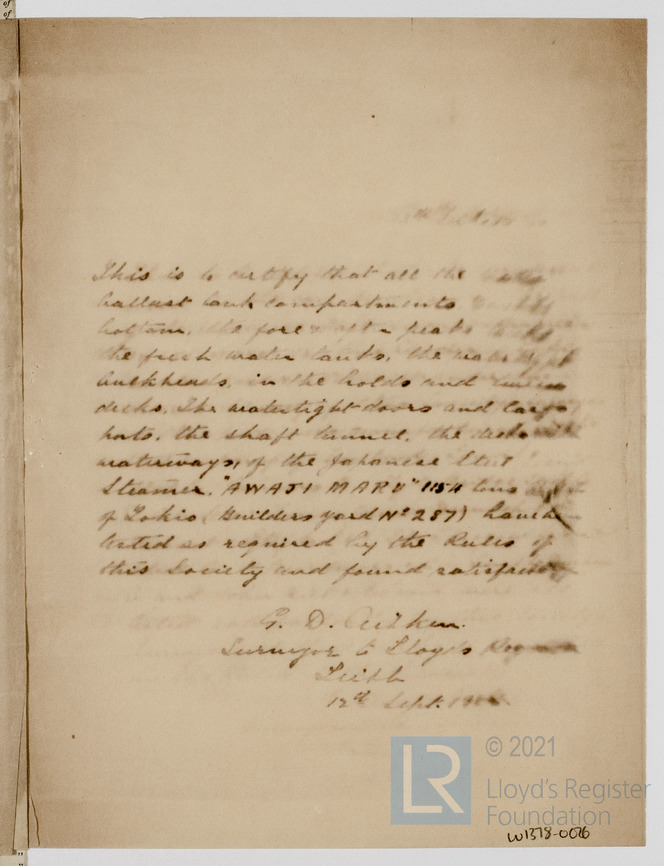 This is to certify that all the
ballast tank compartments
bottom, the fore & aft peaks
the fresh water tanks, the watertight
bulkheads, in the holds and tween
decks. The watertight doors and cargo
ports, the shaft tunnel, the decks
waterways, of the Japanese Steel
Steamer, "AWAJI MARU" 1154 tons
of Tokio (Builders yard No 287) have been
tested as required by the Rules of
this Society and found satisfactory
G. D. Aitken.
Surveyor to Lloyd's Register
Leith
12th Sept.
LR
© 2021
Lloyd's Register
Foundation
W1378-0076
of
of